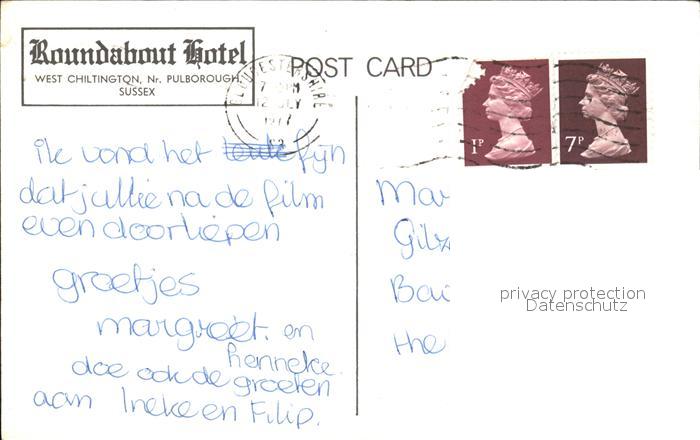 Roundabout Hotel
WEST CHILTINGTON, Nr. PULBOROUGH,
SUSSEX
POST CARD
GLOUCESTERSHIRE
12 JLY
1977
1P
7P
ik vond het leuke fijn
dat jullie na de film
even doorliepen
groetjes
margreet. en
henneke.
doe ook de groeten
aan Ineke en Filip.
Mar
Gilz
Ba
the
privacy protection
Datenschutz